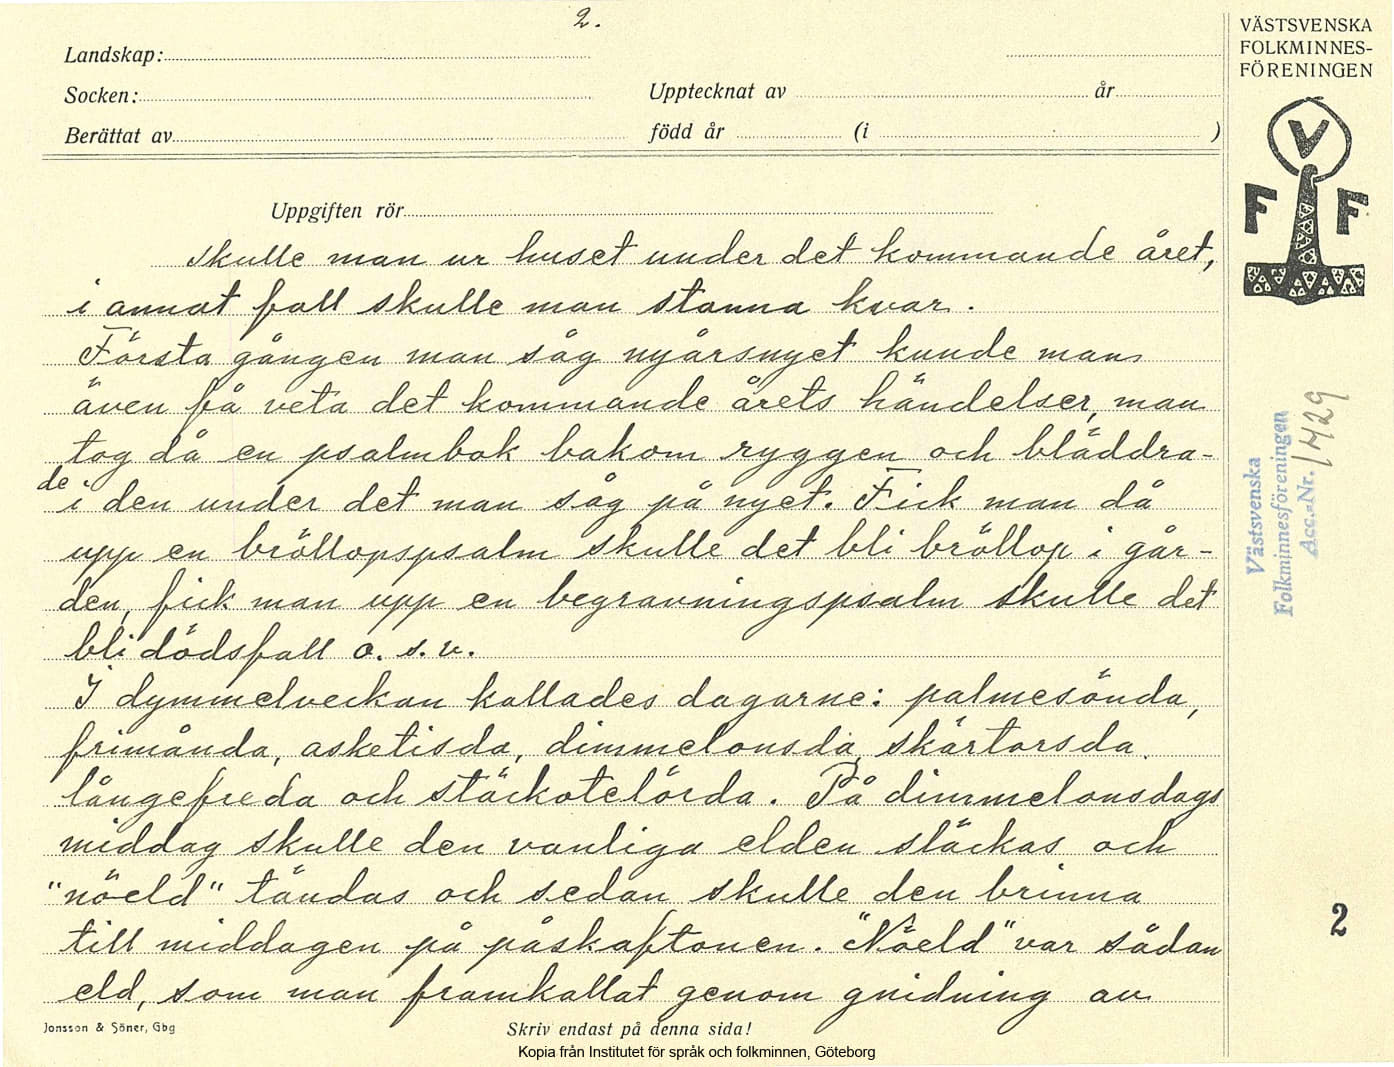 2.
Landskap:
Socken:
Upptecknat av år
Berättat av
född år (i )
Uppgiften rör
skulle man ur huset under det kommande året,
i annat fall skulle man stanna kvar.
Första gången man såg nyårsnyet kunde man
även få veta det kommande årets händelser, man
tog då en psalmbok bakom ryggen och bläddra-
de i den under det man såg på nyet. Fick man då
upp en bröllopspsalm skulle det bli bröllop i går-
den, fick man upp en begravningspsalm skulle det
bli dödsfall o. s. v.
I dymmelveckan kallades dagarne: palmesönda,
frimånda, asketisda, dimmelonsda, skärtorsda,
långefreda och stäckotelörda. På dimmelonsdags
middag skulle den vanliga elden släckas och
"nöeld" tändas och sedan skulle den brinna
till middagen på påskaftonen. "Nöeld" var sådan
eld, som man framkallat genom gnidning av
Jonsson & Söner, Gbg
Skriv endast på denna sida!
Kopia från Institutet för språk och folkminnen, Göteborg
VÄSTSVENSKA
FOLKMINNES-
FÖRENINGEN
V
F F
Västsvenska
Folkminnesföreningen
Acc.-Nr. 1429
2